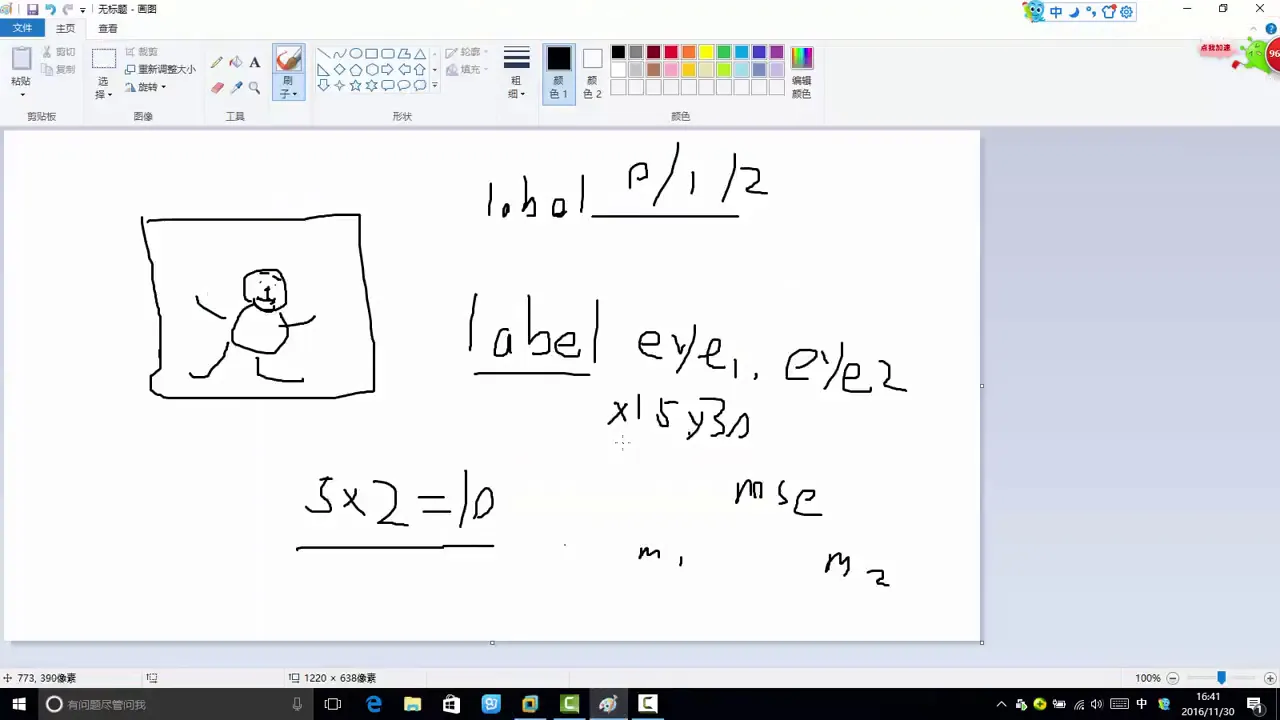 无标题 - 画图
文件 主页 查看
粘贴 剪切 复制
剪贴板
选择 裁剪 重新调整大小 旋转
图像
工具
刷子
形状
轮廓 填充
粗细
颜色 1 颜色 2
颜色
编辑颜色
中
点我加速
96
label 0/1/2
label eye1, eye2
x15 y30
5x2=10
mse
m1 m2
773, 390像素 1220 × 638像素 100%
有问题尽管问我
中
16:41
2016/11/30